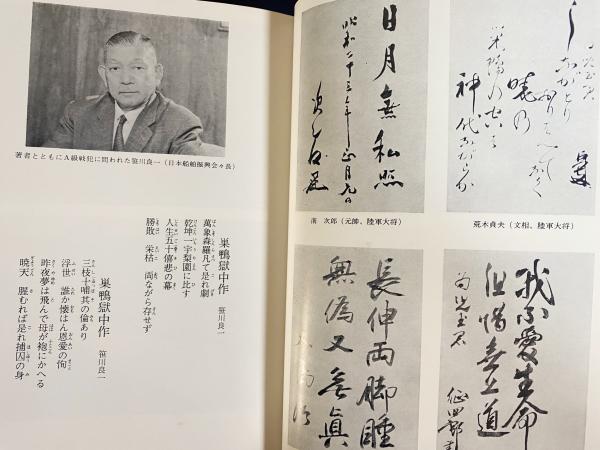 著者とともにA級戦犯に問われた笹川良一（日本船舶振興会々長）
巣鴨獄中作　笹川良一
萬象森羅凡て是れ劇
乾坤一宇梨園に比す
人生五十僖悲の幕
勝敗　栄枯　両ながら存せず
巣鴨獄中作　笹川良一
三枝十哺其の倫あり
浮世　誰か懐はん恩愛の恂
昨夜夢は飛んで母が袍にかへる
暁天　醒むれば是れ捕囚の身
日月無私照
昭和二十三年正月九日
暁の
神代ながらの
荒木貞夫（文相、陸軍大将）
長伸両脚睡
無偽又無真
我不愛生命
但惜無上道